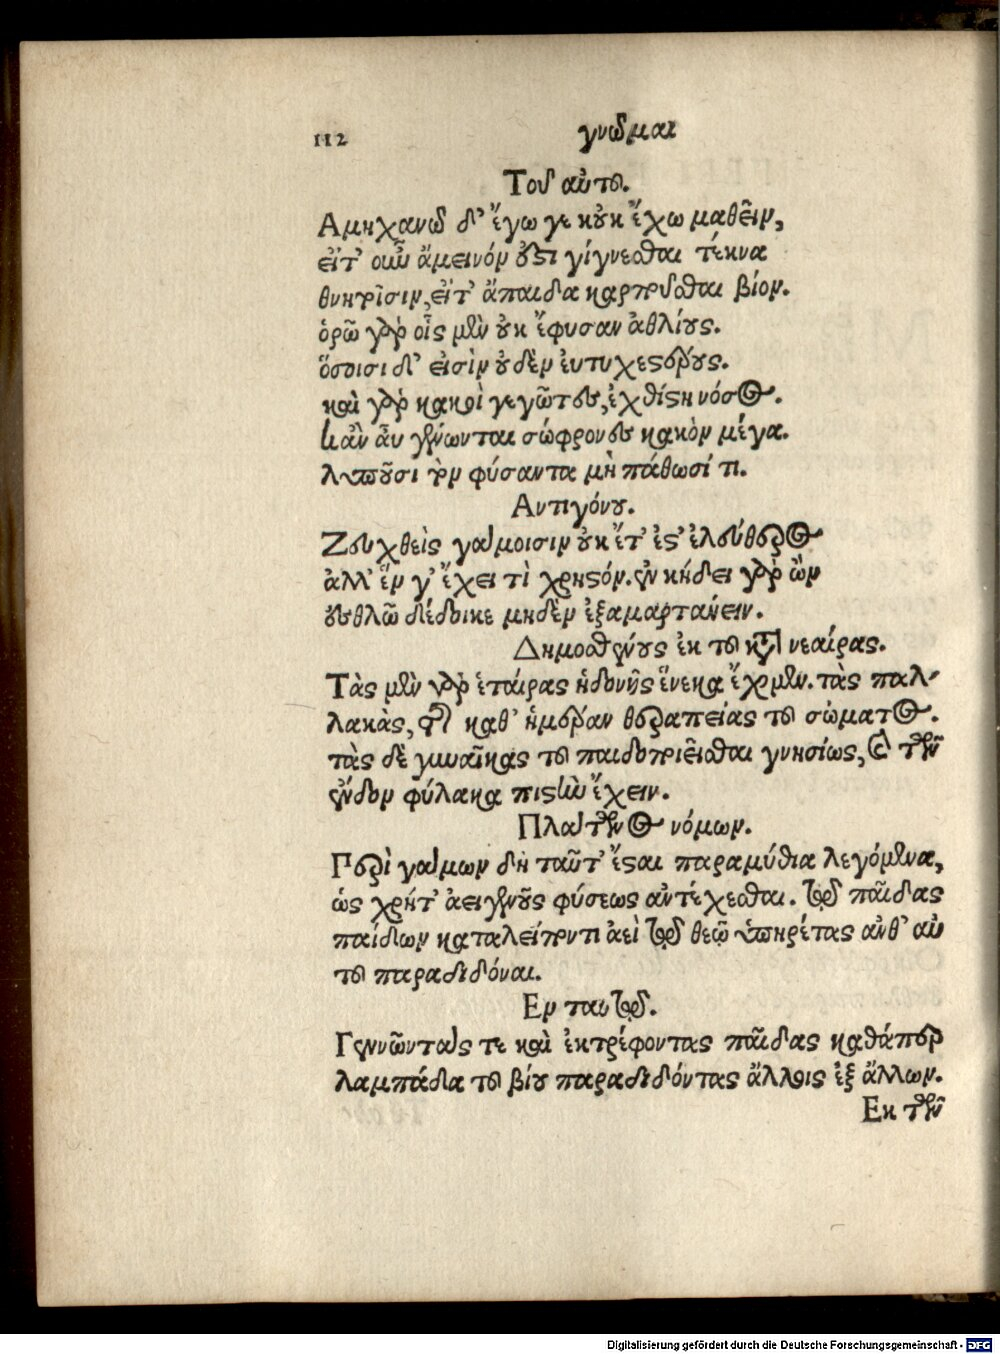 112 γνῶμαι
Τοῦ αὐτοῦ.
Αμηχανῶ δ' ἔγωγε κοὐκ ἔχω μαθεῖν,
εἴτ' οὖν ἄμεινόν ἐστι γίγνεσθαι τέκνα
θνητοῖσιν, εἴτ' ἄπαιδα καρποῦσθαι βίον.
ὁρῶ γὰρ οἷς μὲν οὐκ ἔφυσαν ἀθλίους.
ὅσοισι δ' εἰσὶν οὐδὲν εὐτυχεστέρους.
καὶ γὰρ κακοὶ γεγῶτες, ἐχθίστη νόσος.
κἂν αὖ γένωνται σώφρονες κακὸν μέγα.
λυποῦσι τὸν φύσαντα μὴ πάθωσί τι.
Αντιγόνου.
Ζευχθεὶς γάμοισιν οὐκ ἔτ' ἔστ' ἐλεύθερος
ἀλλ' ἕν γ' ἔχει τὶ χρηστόν. ἐν κήδει γὰρ ὢν
ἐσθλῶ δέδοικε μηδὲν ἐξαμαρτάνειν.
Δημοσθένους ἐκ τοῦ κατὰ νεαίρας.
Τὰς μὲν γὰρ ἑταίρας ἡδονῆς ἕνεκα ἔχομεν. τὰς παλ-
λακὰς, τῆς καθ' ἡμέραν θεραπείας τοῦ σώματος.
τὰς δὲ γυναῖκας τοῦ παιδοποιεῖσθαι γνησίως, καὶ τῶν
ἔνδον φύλακα πιστὴν ἔχειν.
Πλάτωνος νόμων.
Περὶ γάμων δὴ ταῦτ' ἔσται παραμύθια λεγόμενα,
ὡς χρήτ' ἀειγενοῦς φύσεως ἀντέχεσθαι. τῷ παῖδας
παίδων καταλείποντι ἀεὶ τῷ θεῷ ὑπηρέτας ἀνθ' αὐ
τοῦ παραδιδόναι.
Εν ταυτῷ.
Γεννῶντάς τε καὶ ἐκτρέφοντας παῖδας καθάπερ
λαμπάδα τοῦ βίου παραδιδόντας ἄλλοις ἐξ ἄλλων.
Εκ τῶν
Digitalisierung gefördert durch die Deutsche Forschungsgemeinschaft - DFG